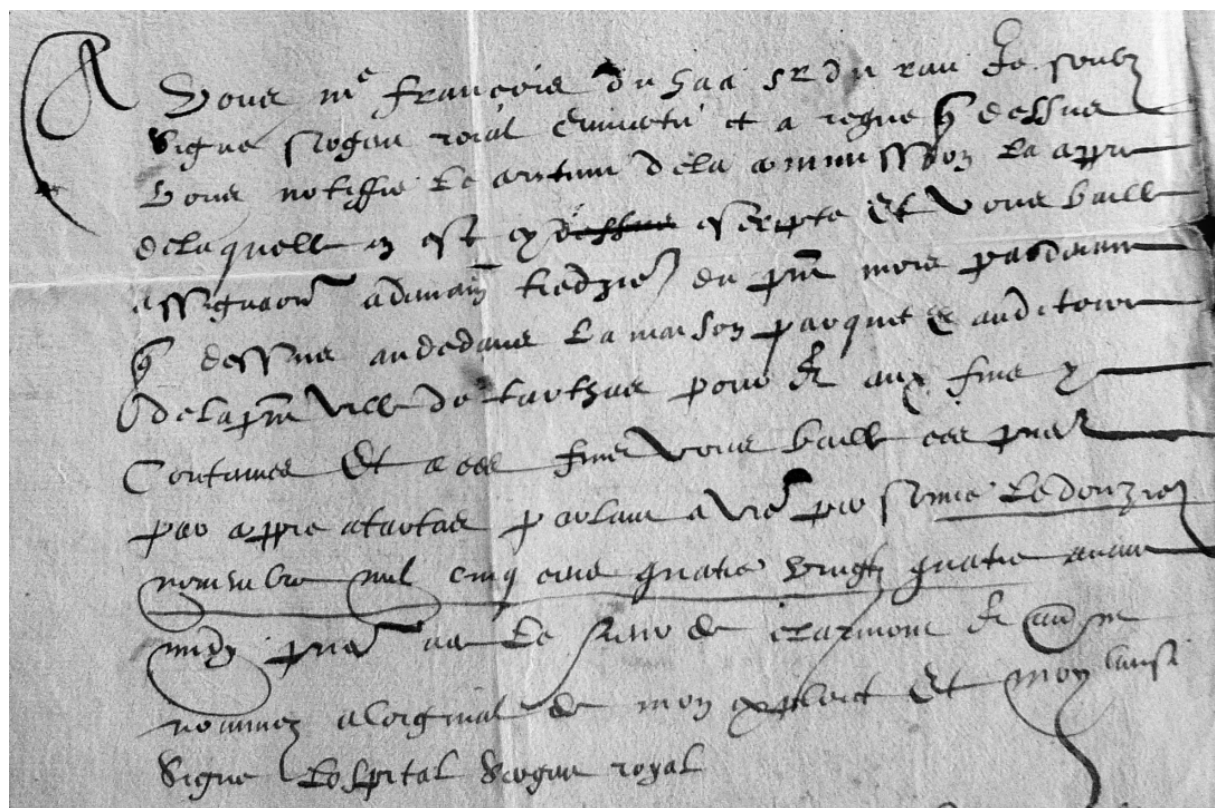 A Vous me françois du haa sr du rau Je soubz
signe sergen roial et a regne q dessus
Vous notiffie le contenu dela commission la coppie
delaquelle en est cy dessus escripte Et vous baille
assignaon a demain tredzie du pnt mois pardavant
q dessus audedans la maison parquet & auditoire
dela pnt ville de tarthas pour & aux fins y
Contenues Et a ces fins vous baille ces pntes
par coppie a tartas parlant a vre personne le douzie
novembre mil cinq cens quatre vingtz quatre avant
midy pntz le sieur de clarmont &
nommez a loriginal de mon exploict Et moy
signe Lospital sergen royal